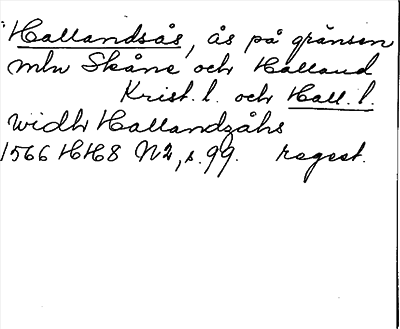 Hallandsås, ås på gränsen
mlm Skåne och Halland
Krist. l. och Hall. l.
widh Hallandzåhs
1566 HH8 N2, s. 99. regest.